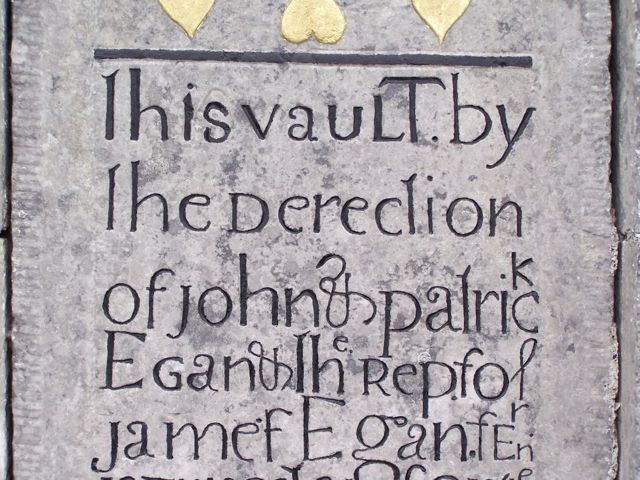 This vauLT.by
The Derection
of john & patrick
Egan & The Rep.ſ of
jameſ Egan.ſEnr